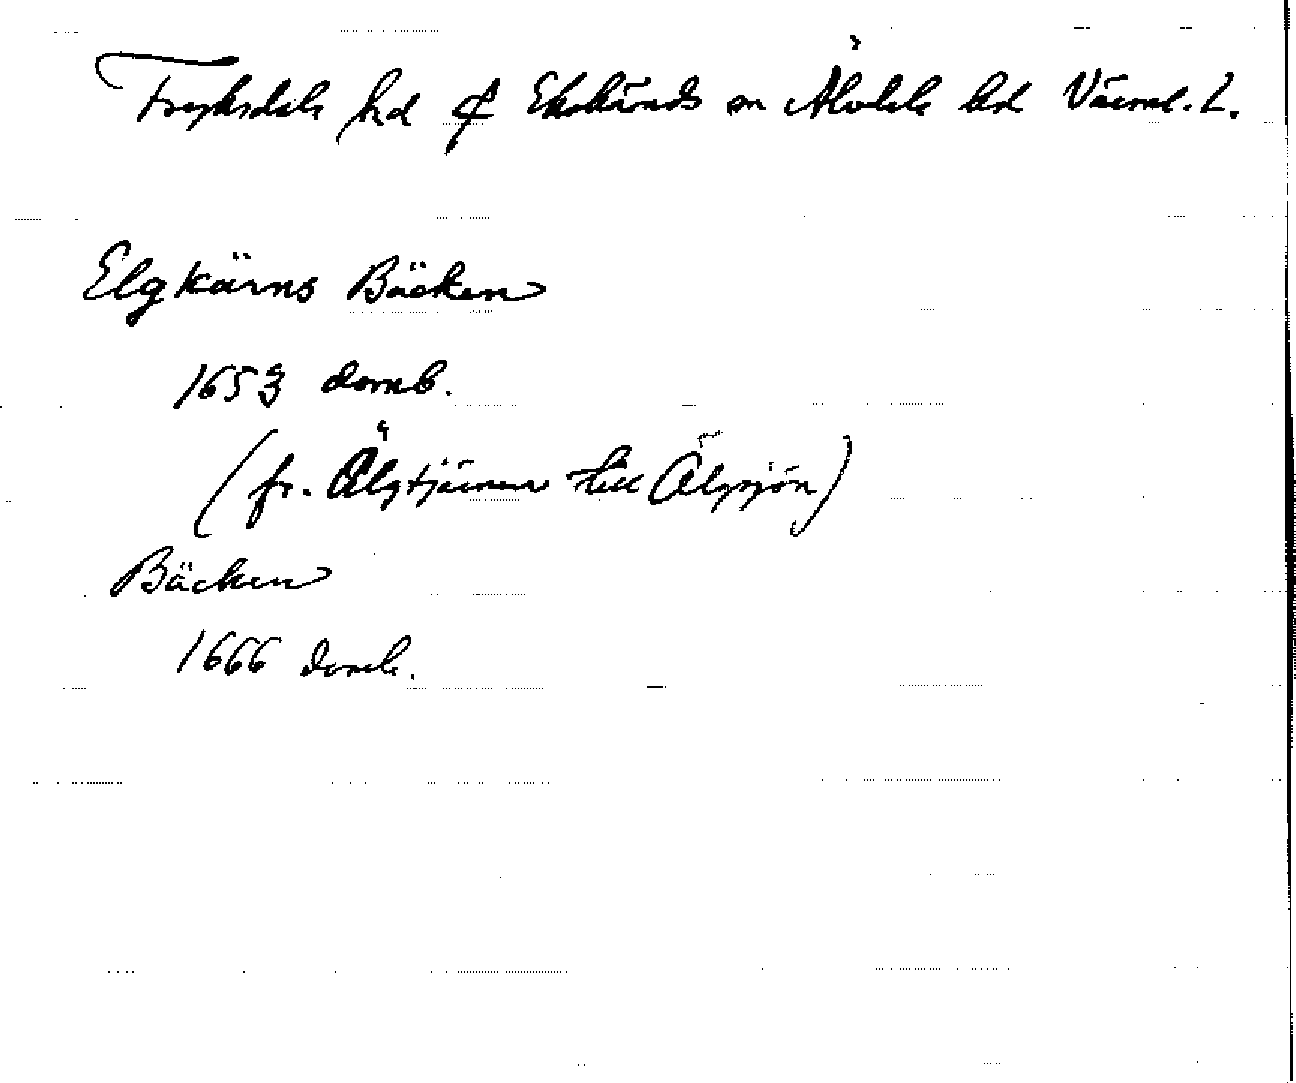 Fryksdals hd ₵ Ekshärads sn Älvdals hd Värml. L.
Elgkärns Bäcken
1653 domb.
(fr. Älgtjärnen till Älgsjön)
Bäcken
1666 domb.